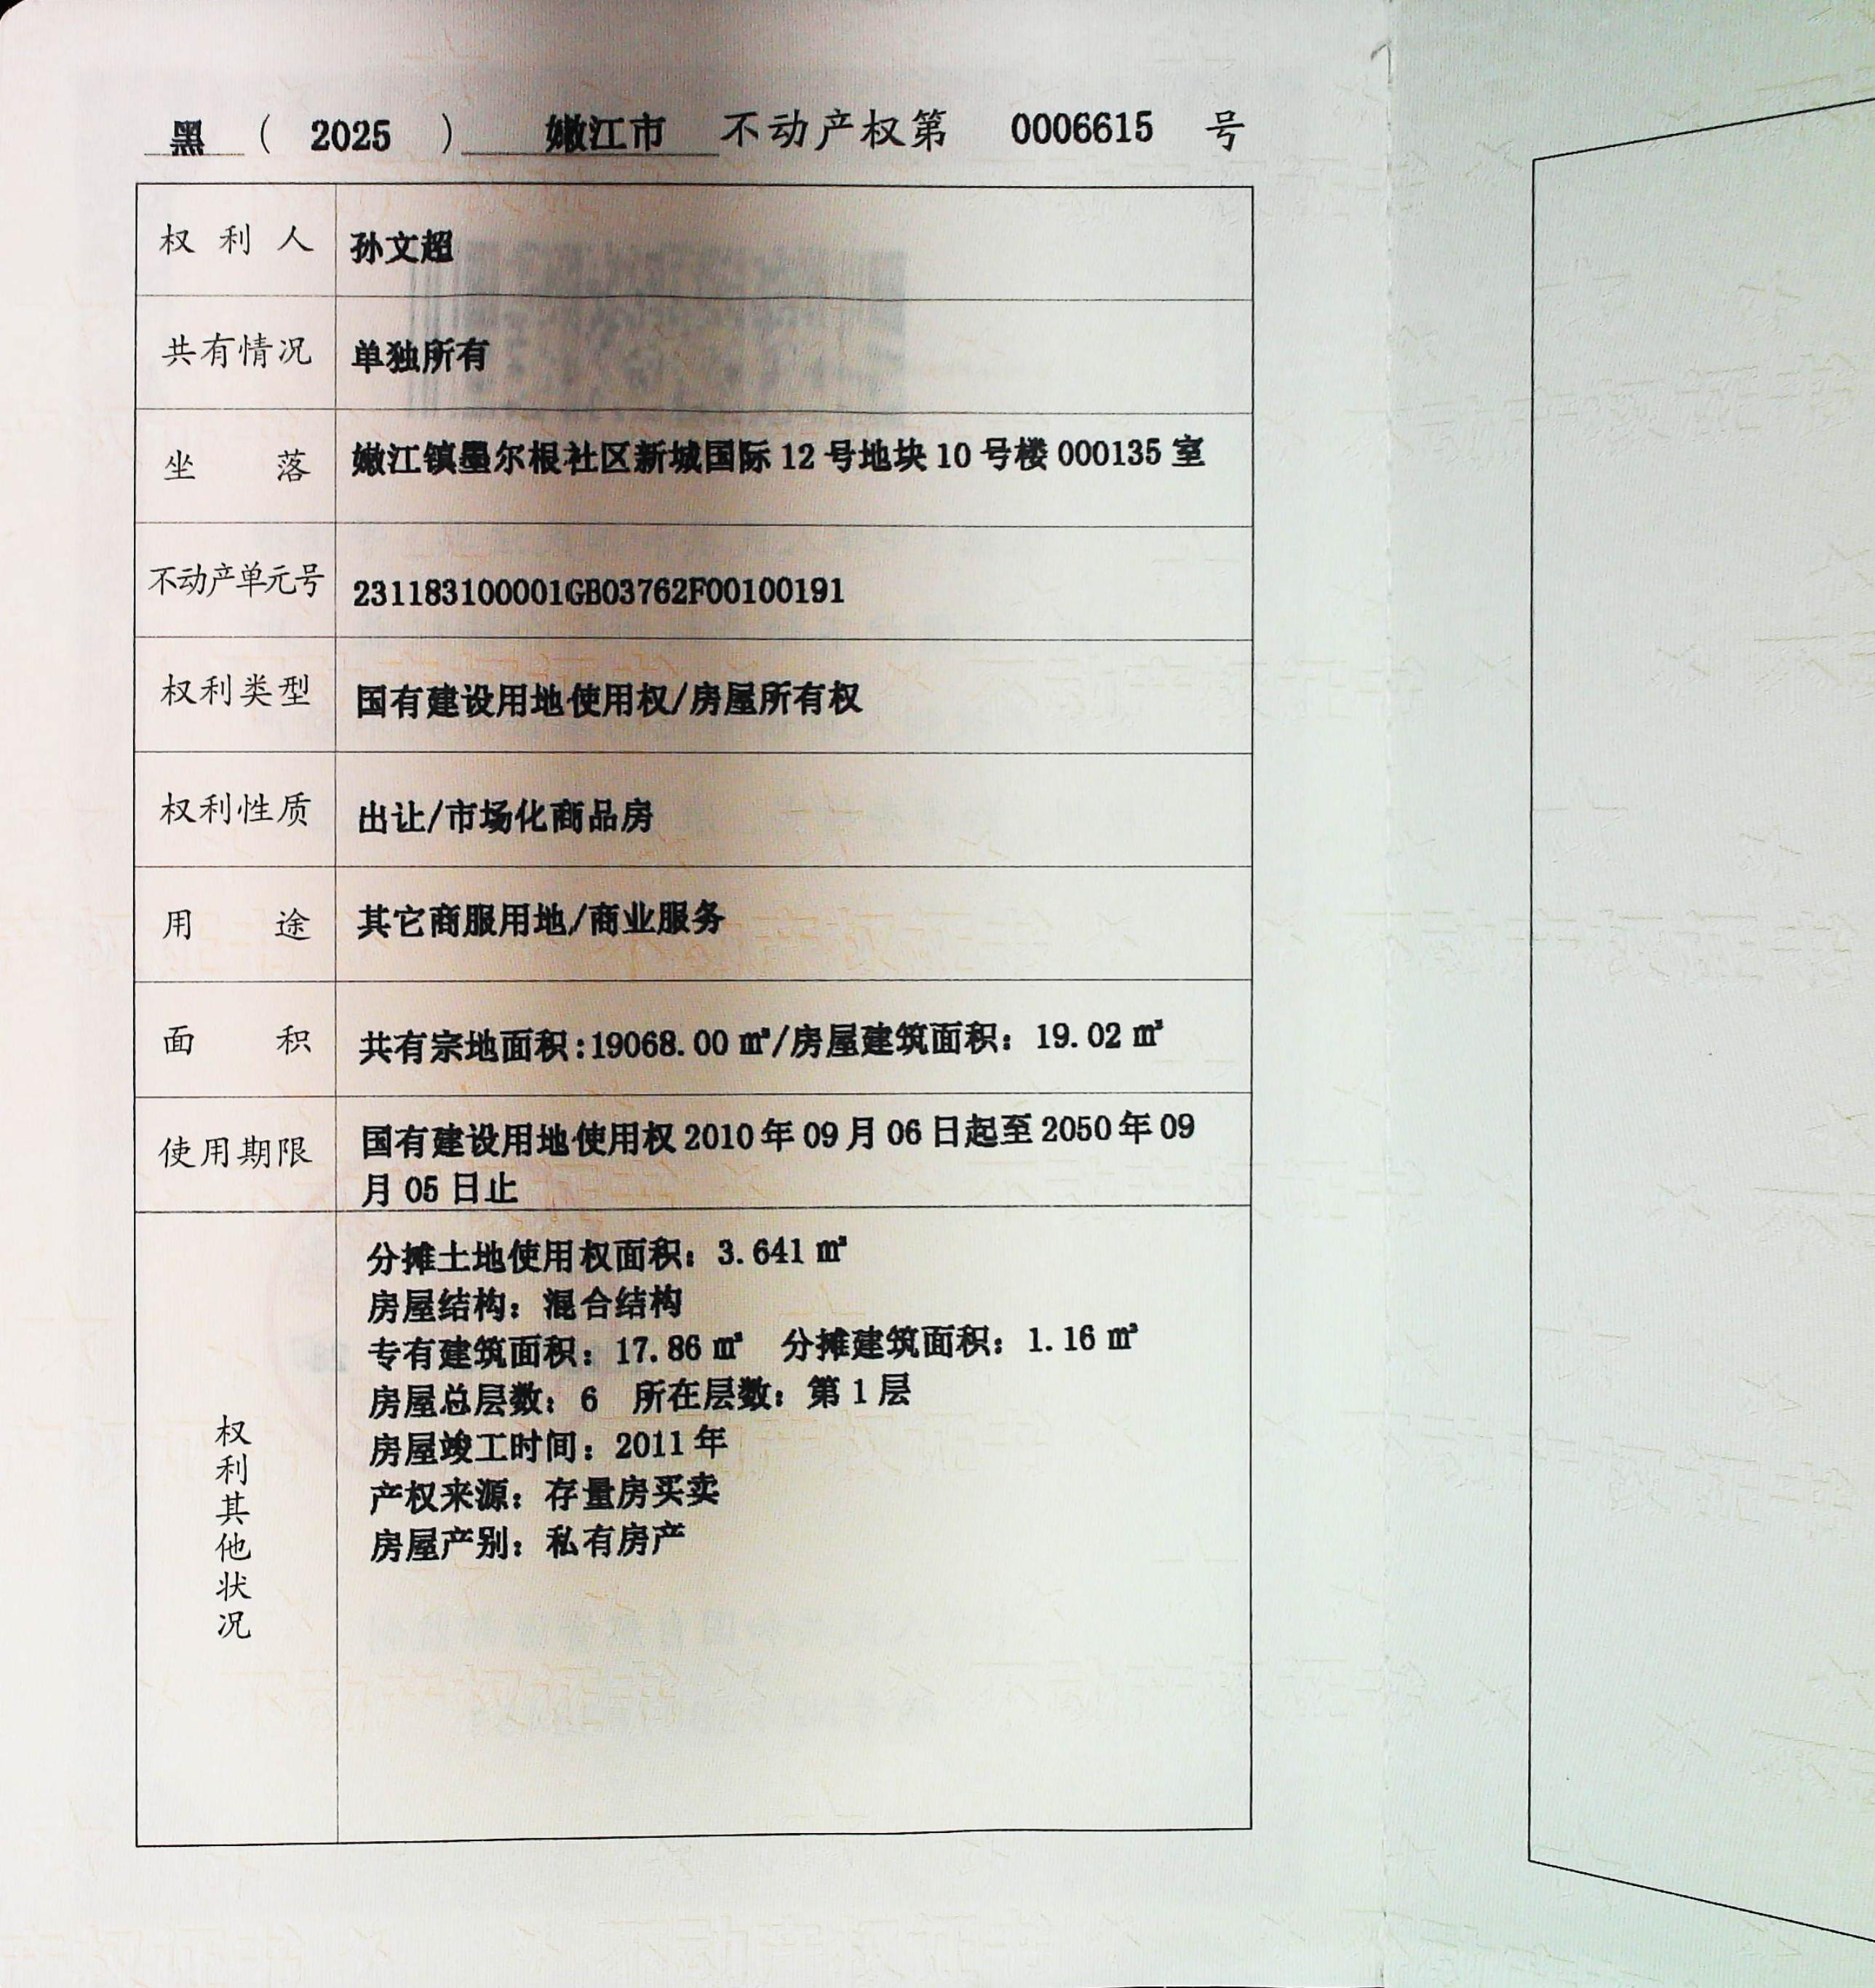 黑 ( 2025 ) 嫩江市 不动产权第 0006615 号
权利人 孙文超
共有情况 单独所有
坐落 嫩江镇墨尔根社区新城国际12号地块10号楼000135室
不动产单元号 231183100001GB03762F00100191
权利类型 国有建设用地使用权/房屋所有权
权利性质 出让/市场化商品房
用途 其它商服用地/商业服务
面积 共有宗地面积:19068.00㎡/房屋建筑面积：19.02㎡
使用期限 国有建设用地使用权2010年09月06日起至2050年09
月05日止
权利其他状况
分摊土地使用权面积：3.641㎡
房屋结构：混合结构
专有建筑面积：17.86㎡ 分摊建筑面积：1.16㎡
房屋总层数：6 所在层数：第1层
房屋竣工时间：2011年
产权来源：存量房买卖
房屋产别：私有房产